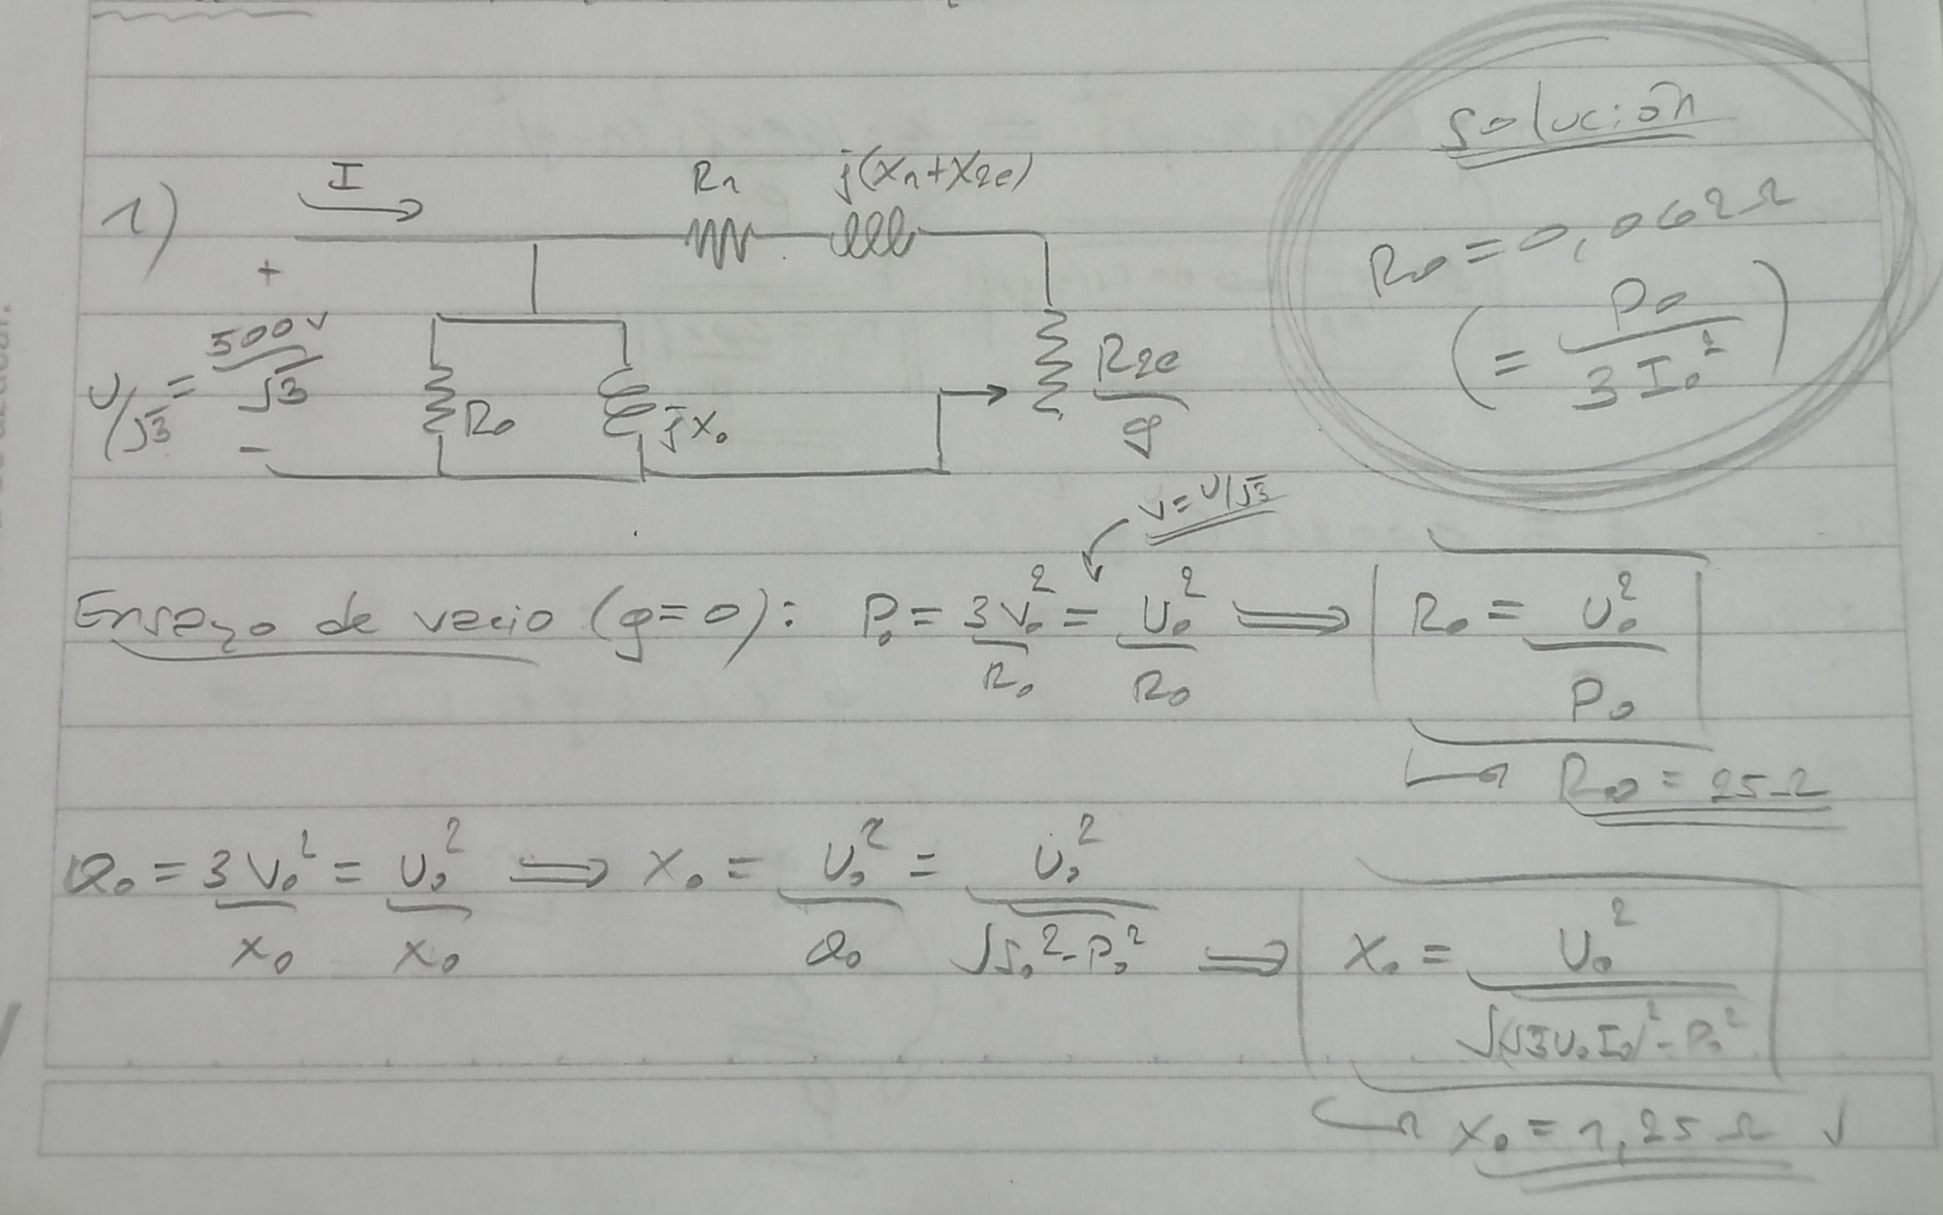 1)
I
R1
j(X1+X2e)
+
U/√3 = 500V/√3
-
R0
jX0
R2e/g
Solución
R0 = 0,062Ω
(= P0/3I0²)
V=U/√3
Ensayo de vacio (g=0): P0 = 3V0²/R0 = U0²/R0 ⟹ R0 = U0²/P0
↳ R0 = 25Ω
Q0 = 3V0²/X0 = U0²/X0 ⟹ X0 = U0²/Q0 = U0²/√S0²-P0² ⟹ X0 = U0²/√(√3U0I0)²-P0²
↳ X0 = 1,25Ω ✓